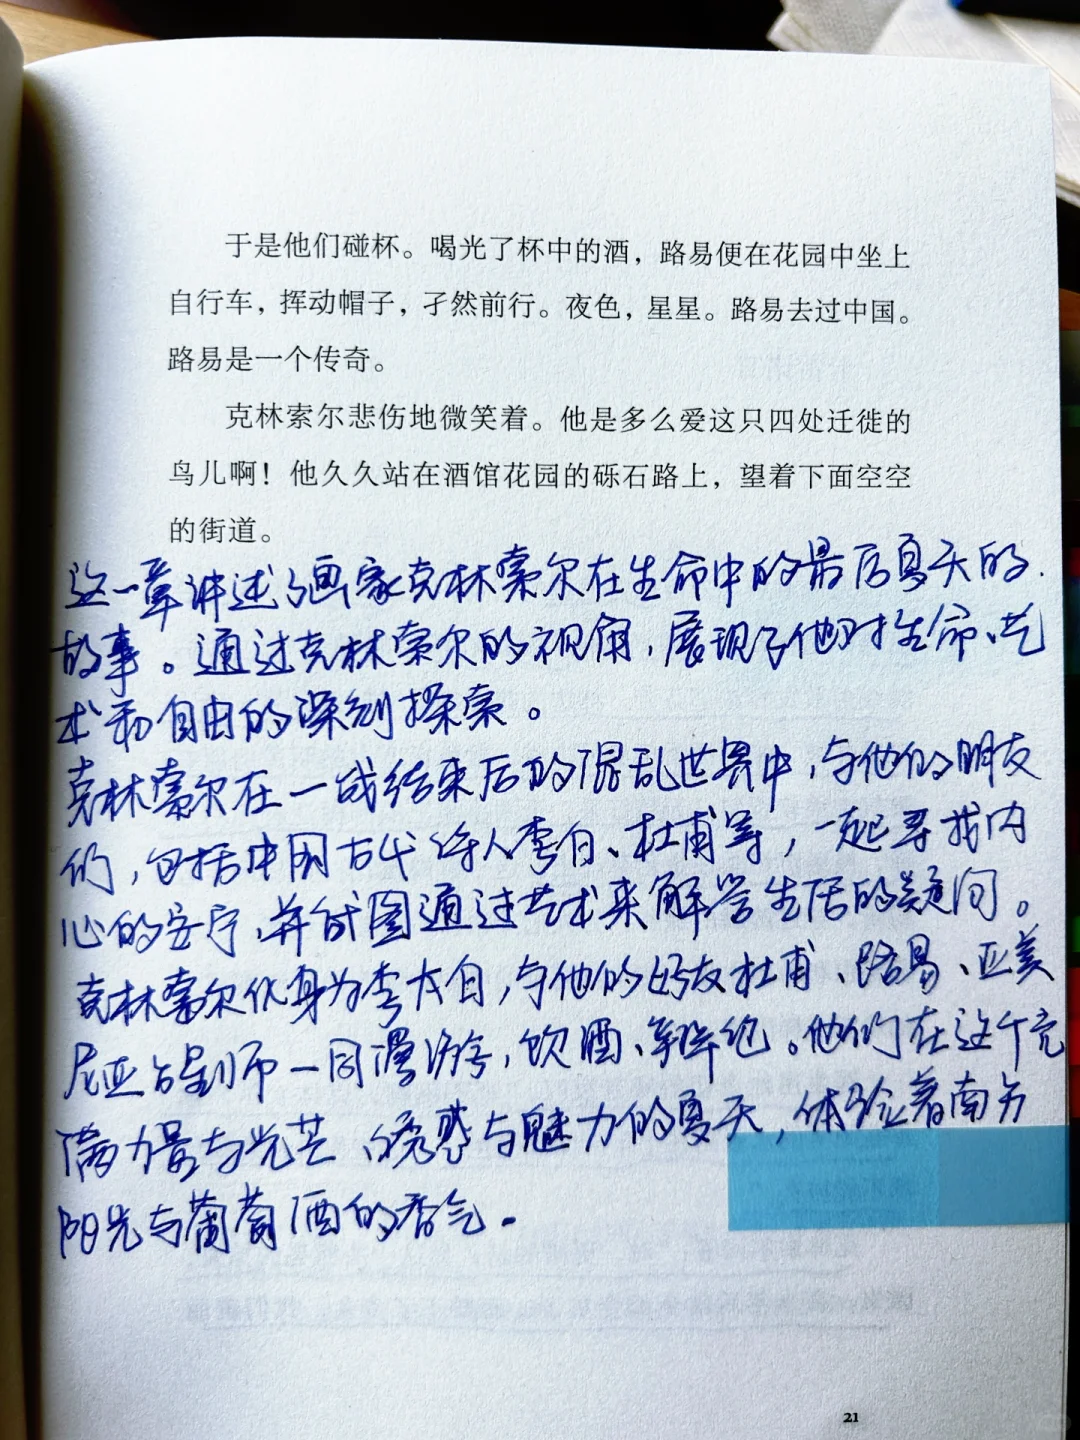 于是他们碰杯。喝光了杯中的酒，路易便在花园中坐上
自行车，挥动帽子，孑然前行。夜色，星星。路易去过中国。
路易是一个传奇。
克林索尔悲伤地微笑着。他是多么爱这只四处迁徙的
鸟儿啊！他久久站在酒馆花园的砾石路上，望着下面空空
的街道。
这一章讲述了画家克林索尔在生命中的最后夏天的
故事。通过克林索尔的视角，展现了他对生命、艺
术和自由的深刻探索。
克林索尔在一战结束后的混乱世界中，与他的朋友
们，包括中国古代诗人李白、杜甫等，一起寻找内
心的安宁，并试图通过艺术来解答生活的疑问。
克林索尔化身为李太白，与他的好友杜甫、路易、亚美
尼亚占星师一同漫游，饮酒、狂欢。他们在这个充
满力量与光芒、诱惑与魅力的夏天，体验着南方
阳光与葡萄酒的香气。
21